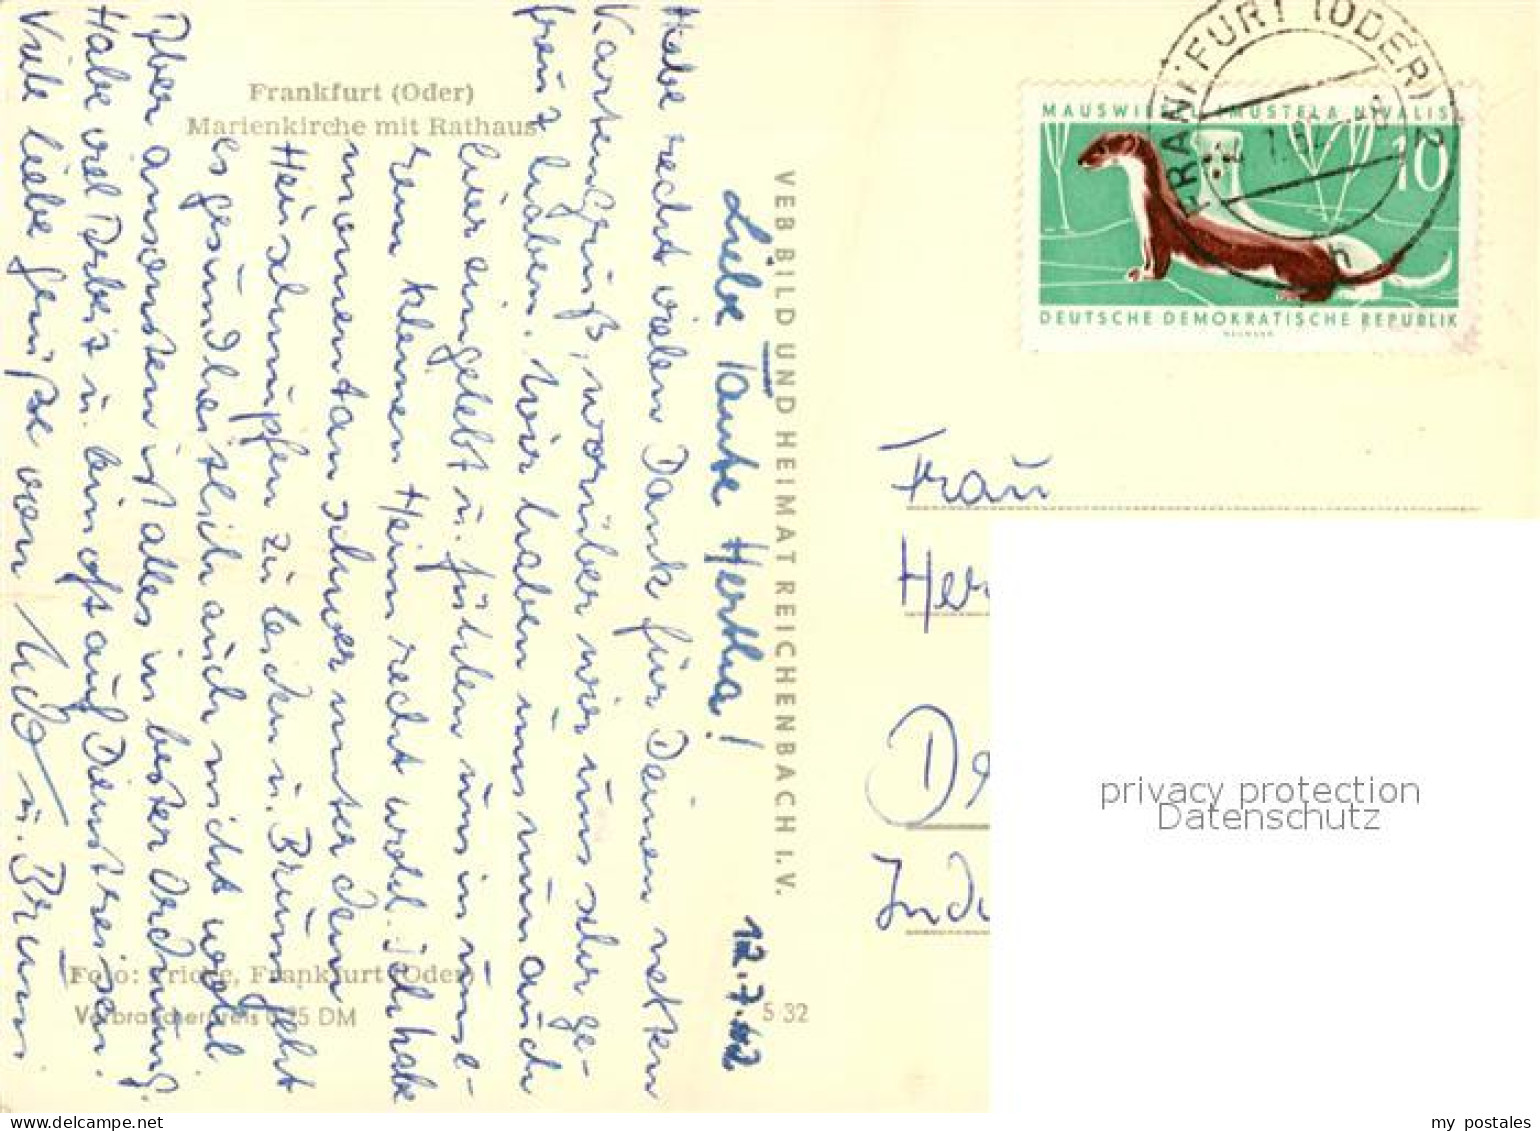 Frankfurt (Oder)
Marienkirche mit Rathaus
VEB BILD UND HEIMAT REICHENBACH I.V.
S 32
Foto: Fricke, Frankfurt (Oder)
Verbraucherpreis 0,25 DM
12.7.62
Liebe Tante Hertha!
Habe recht vielen Dank für Deinen netten
Kartengruß, worüber wir uns sehr ge-
freut haben. Wir haben uns nun auch
hier eingelebt u. fühlen uns in unse-
rem kleinen Heim recht wohl. Ich habe
momentan schwer unter dem
Heuschnupfen zu leiden u. Brunn geht
es gesundheitlich auch nicht wohl.
Aber ansonsten ist alles in bester Ordnung.
Habe viel Arbeit u. bin oft auf Dienstreisen.
Viele liebe Grüße von u. Brunn
FRANKFURT (ODER) 2
h
MAUSWIESEL (MUSTELA NIVALIS)
10
DEUTSCHE DEMOKRATISCHE REPUBLIK
Frau
Her
De
Ind
privacy protection
Datenschutz
my postales